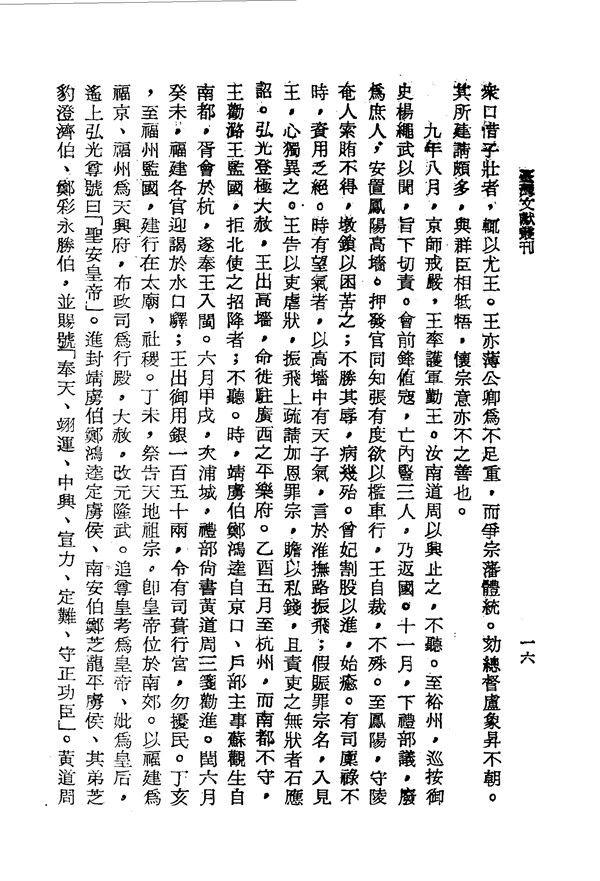 臺灣文獻叢刊
一六
衆口惜子壯者，輒以尤王。王亦薄公卿爲不足重，而爭宗藩體統。劾總督盧象昇不朝。
其所建請頗多，與群臣相牴牾，懷宗意亦不之善也。
九年八月，京師戒嚴，王率護軍勤王。汝南道周以興止之，不聽。至裕州，巡按御
史楊繩武以聞，旨下切責。會前鋒值寇，亡內豎三人，乃返國。十一月，下禮部議，廢
爲庶人，安置鳳陽高墻。押發官同知張有度欲以檻車行，王自裁，不殊。至鳳陽，守陵
奄人索賄不得，墩鎖以困苦之；不勝其辱，病幾殆。曾妃割股以進，始癒。有司廩祿不
時，資用乏絕。時有望氣者，以高墻中有天子氣，言於淮撫路振飛；假賑罪宗名，入見
王，心獨異之。王告以吏虐狀，振飛上疏請加恩罪宗，贍以私錢，且責吏之無狀者石應
詔。弘光登極大赦，王出高墻，命徙駐廣西之平樂府。乙酉五月至杭州，而南都不守，
王勸潞王監國，拒北使之招降者；不聽。時，靖虜伯鄭鴻逵自京口、戶部主事蘇觀生自
南都，胥會於杭，遂奉王入閩。六月甲戌，次浦城，禮部尙書黃道周三箋勸進。閏六月
癸未，福建各官迎謁於水口驛；王出御用銀一百五十兩，令有司葺行宮，勿擾民。丁亥
，至福州監國，建行在太廟、社稷。丁未，祭告天地祖宗。卽皇帝位於南郊。以福建爲
福京、福州爲天興府，布政司爲行殿，大赦，改元隆武。追尊皇考爲皇帝、妣爲皇后，
遙上弘光尊號曰「聖安皇帝」。進封靖虜伯鄭鴻逵定虜侯、南安伯鄭芝龍平虜侯、其弟芝
豹澄濟伯、鄭彩永勝伯，並賜號「奉天、翊運、中興、宣力、定難、守正功臣」。黃道周